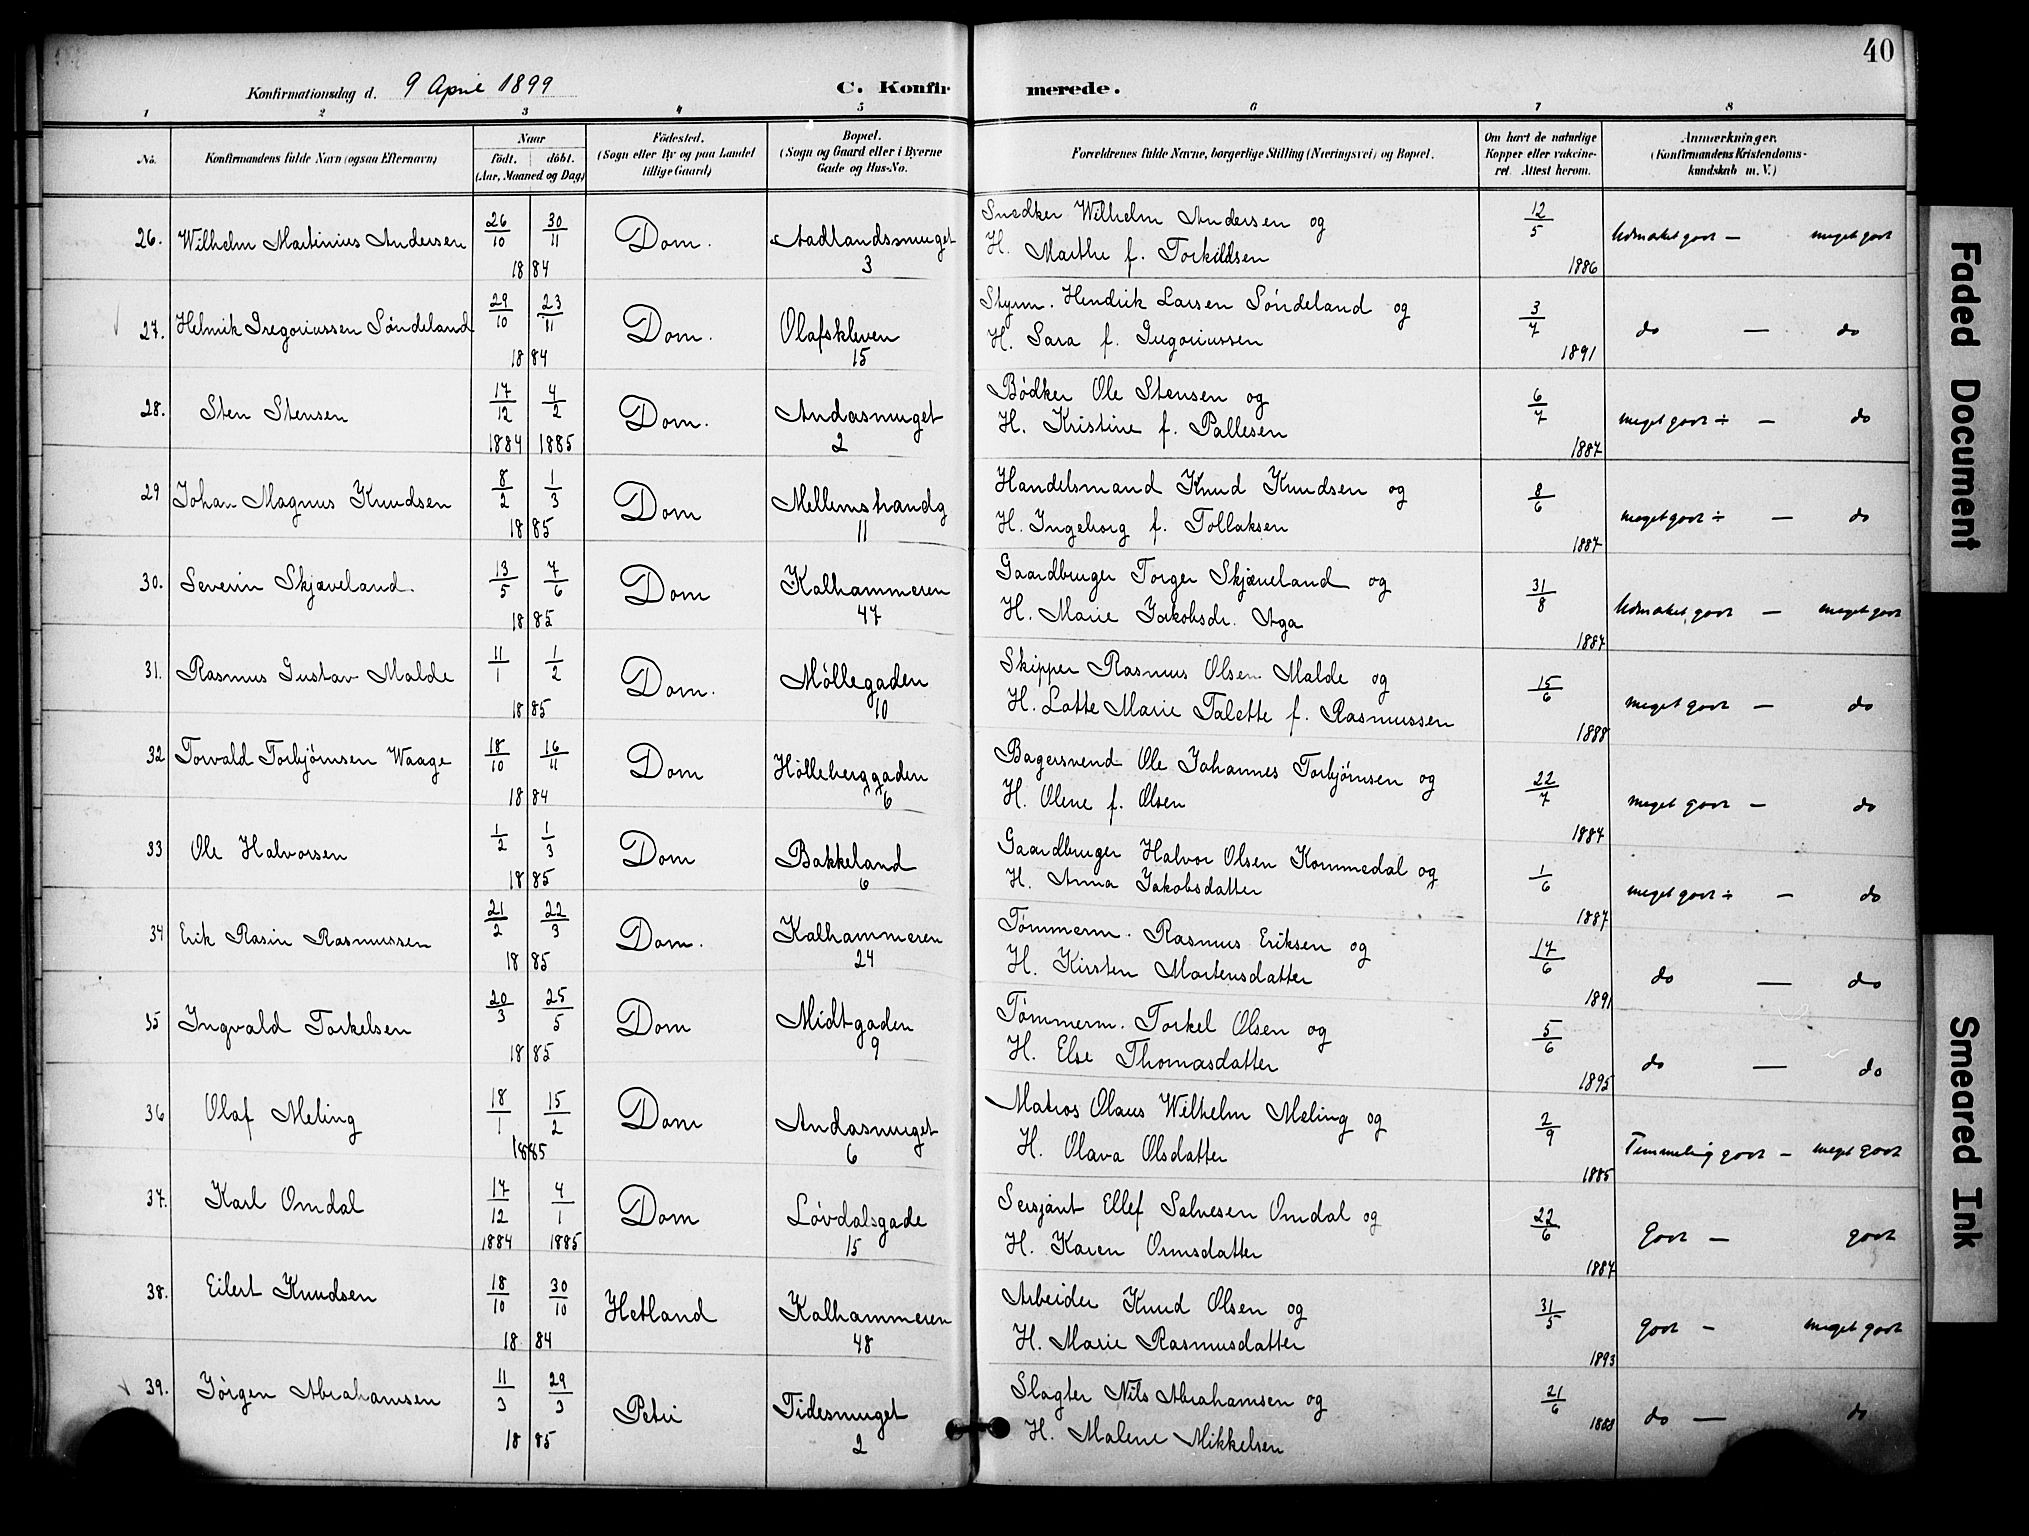 40
Konfirmationsdag d. 9 April 1899 C. Konfirmerede.
1 2 3 4 5 6 7 8
No. Konfirmandens fulde Navn (ogsaa Efternavn) Naar födt. döbt. (Aar, Maaned og Dag) Födested. (Sogn eller By og paa Landet tillige Gaard) Bopæl. (Sogn og Gaard eller i Byerne Gade og Hus-No. Forældrenes fulde Navne, borgerlige Stilling (Næringsvei) og Bopæl. Om havt de naturlige Kopper eller vakcineret. Attest herom. Anmærkninger. (Konfirmandens Kristendomskundskab m. V.)
26. Wilhelm Martinius Andersen 26/10 30/11 1884 Dom. Aadlandsmuget 3 Snedker Wilhelm Andersen og
H. Marthe f. Torkildsen 12/5 1886 Udmærket godt — meget godt
27. Helmik Gregoriussen Söndeland 29/10 23/11 1884 Dom. Olafskleven 15 Styrm. Hendrik Larsen Söndeland og
H. Sara f. Gregoriussen 3/7 1891 do — do
28. Sten Stensen 17/12 1884 4/2 1885 Dom. Andasmuget 2 Bödker Ole Stensen og
H. Kristine f. Pallesen 6/7 1887 meget godt ÷ — do
29 Johan Magnus Knudsen 8/2 1/3 1885 Dom Mellemstrandg 11 Handelsmand Knud Knudsen og
H. Ingeborg f. Tollaksen 8/6 1887 meget godt ÷ — do
30. Severin Skjæveland 13/5 7/6 1885 Dom Kalhammeren 47 Gaardbruger Torger Skjæveland og
H. Marie Jakobsdr. Aga 31/8 1887 Udmærket godt — meget godt
31. Rasmus Gustav Malde 11/1 1/2 1885 Dom. Möllegaden 10 Skipper Rasmus Olsen Malde og
H. Lotte Marie Talette f. Rasmussen 15/6 1888 meget godt — do
32 Torvald Torbjörnsen Waage 18/10 16/11 1884 Dom Hölleberggaden 6 Bagersvend Ole Johannes Torbjörnsen og
H. Olene f. Olsen 22/7 1887 meget godt — do
33 Ole Halvorsen 1/2 1/3 1885 Dom Bakkeland 6 Gaardbruger Halvor Olsen Kommedal og
H. Anna Jakobsdatter 1/6 1887 meget godt ÷ — do
34 Erik Rasin Rasmussen 21/2 22/3 1885 Dom. Kalhammeren 24 Tömmerm. Rasmus Eriksen og
H. Kirsten Mortensdatter 17/6 1891 do — do
35 Ingvald Torkelsen 20/3 25/5 1885 Dom Midtgaden 9 Tömmerm. Torkel Olsen og
H. Else Thomasdatter 5/6 1895 do — do
36 Olaf Meling 18/1 15/2 1885 Dom Andasmuget 6 Matros Olaus Wilhelm Meling og
H. Olava Olsdatter 2/9 1885 Temmelig godt — meget godt
37. Karl Omdal 17/12 1884 4/1 1885 Dom Lövdalsgade 15 Sersjant Ellef Salvesen Omdal og
H. Karen Ormsdatter 22/6 1887 godt — godt
38. Eilert Knudsen 18/10 30/10 1884 Hetland Kalhammeren 48 Arbeider Knud Olsen og
H. Marie Rasmusdatter 31/5 1893 godt — meget godt
39. Jörgen Abrahamsen 11/3 29/3 1885 Petri Tidesmuget 2 Slagter Nils Abrahamsen og
H. Malene Mikkelsen 21/6 1888 do — do
Faded Document
Smeared Ink